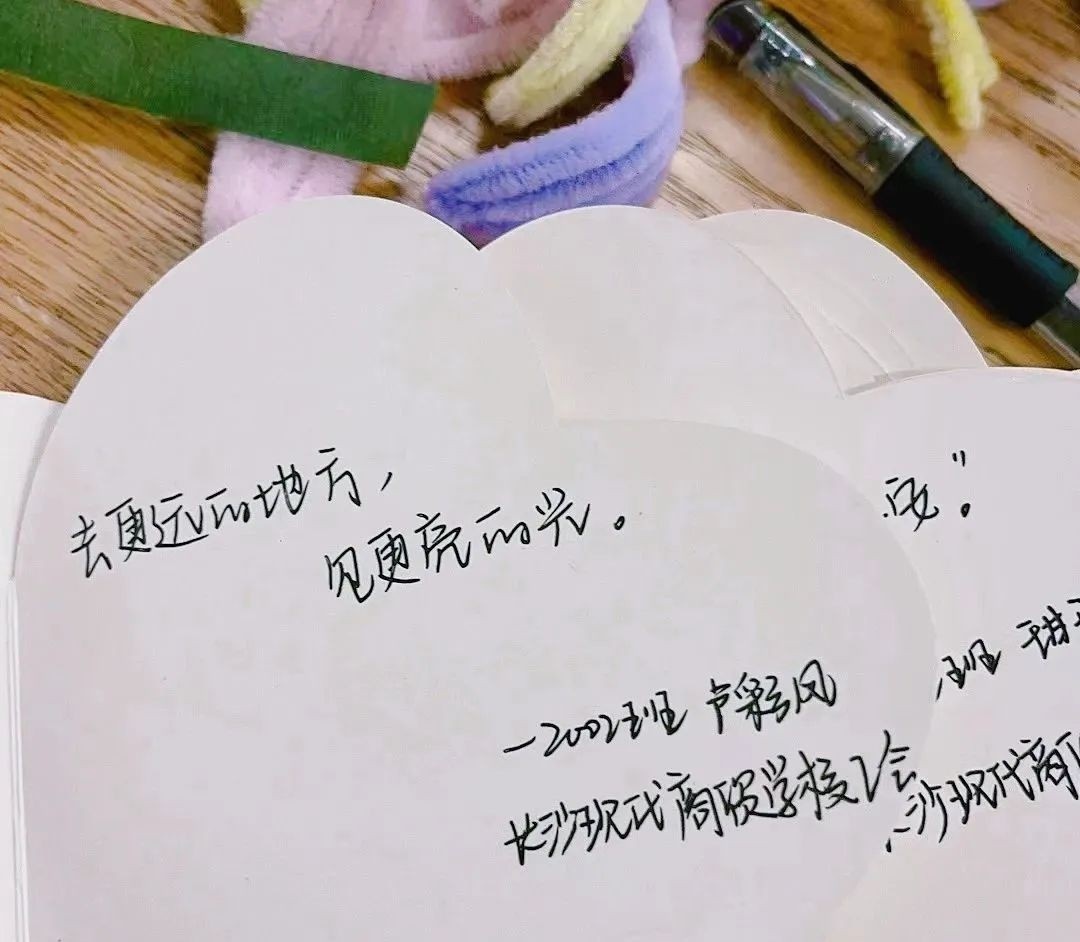 去更远的地方，
见更亮的光。
—2002班 卢彩凤
长沙现代商贸学校工会
安。”
班 甜
沙现代商